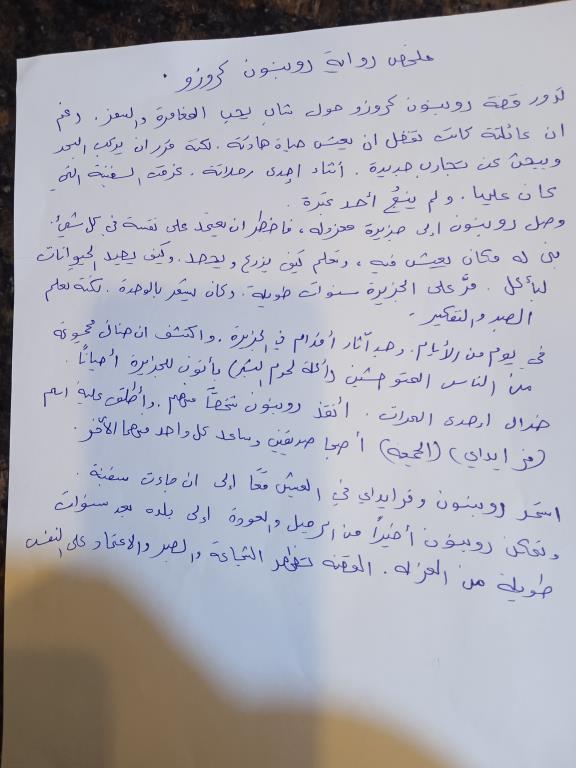 ملخص رواية روبنسون كروزو .
تدور قصة روبنسون كروزو حول شاب يحب المغامرة والسفر. رغم
ان عائلتة كانت تفضل ان يعيش حياة هادئة. لكنة قرر ان يركب البحر
ويبحث عن تجارب جديدة. أثناء إحدى رحلاتة. غرقت السفينة التي
كان عليها. ولم ينجُ أحد غيرة.
وصل روبنسون إلى جزيرة معزوله، فاضطر ان يعتمد على نفسة في كل شيئ.
بنى له مكان يعيش فيه، وتعلم كيف يزرع ويحصد. وكيف يصيد الحيوانات
ليأكل. مرَّ على الجزيرة سنوات طويلة. وكان يشعر بالوحدة. لكنة تعلم
الصبر والتفكير.
في يوم من الأيام. وجد آثار أقدام في الجزيرة. واكتشف ان هنالك مجموعة
من الناس المتوحشين (أكلة لحوم البشر) يأتون للجزيرة أحياناً.
خلال إحدى المرات. أنقذ روبنسون شخصاً منهم. وأطلق علية اسم
(فرايداي) (الجمعة) أصبحا صديقين وساعد كل واحد منهما الآخر.
استمر روبنسون وفرايداي في العيش معًا إلى ان جاءت سفينة.
وتمكن روبنسون أخيراً من الرحيل والعودة إلى بلده بعد سنوات
طويلة من العزله. القصة تظهر الشجاعة والصبر والاعتماد على النفس